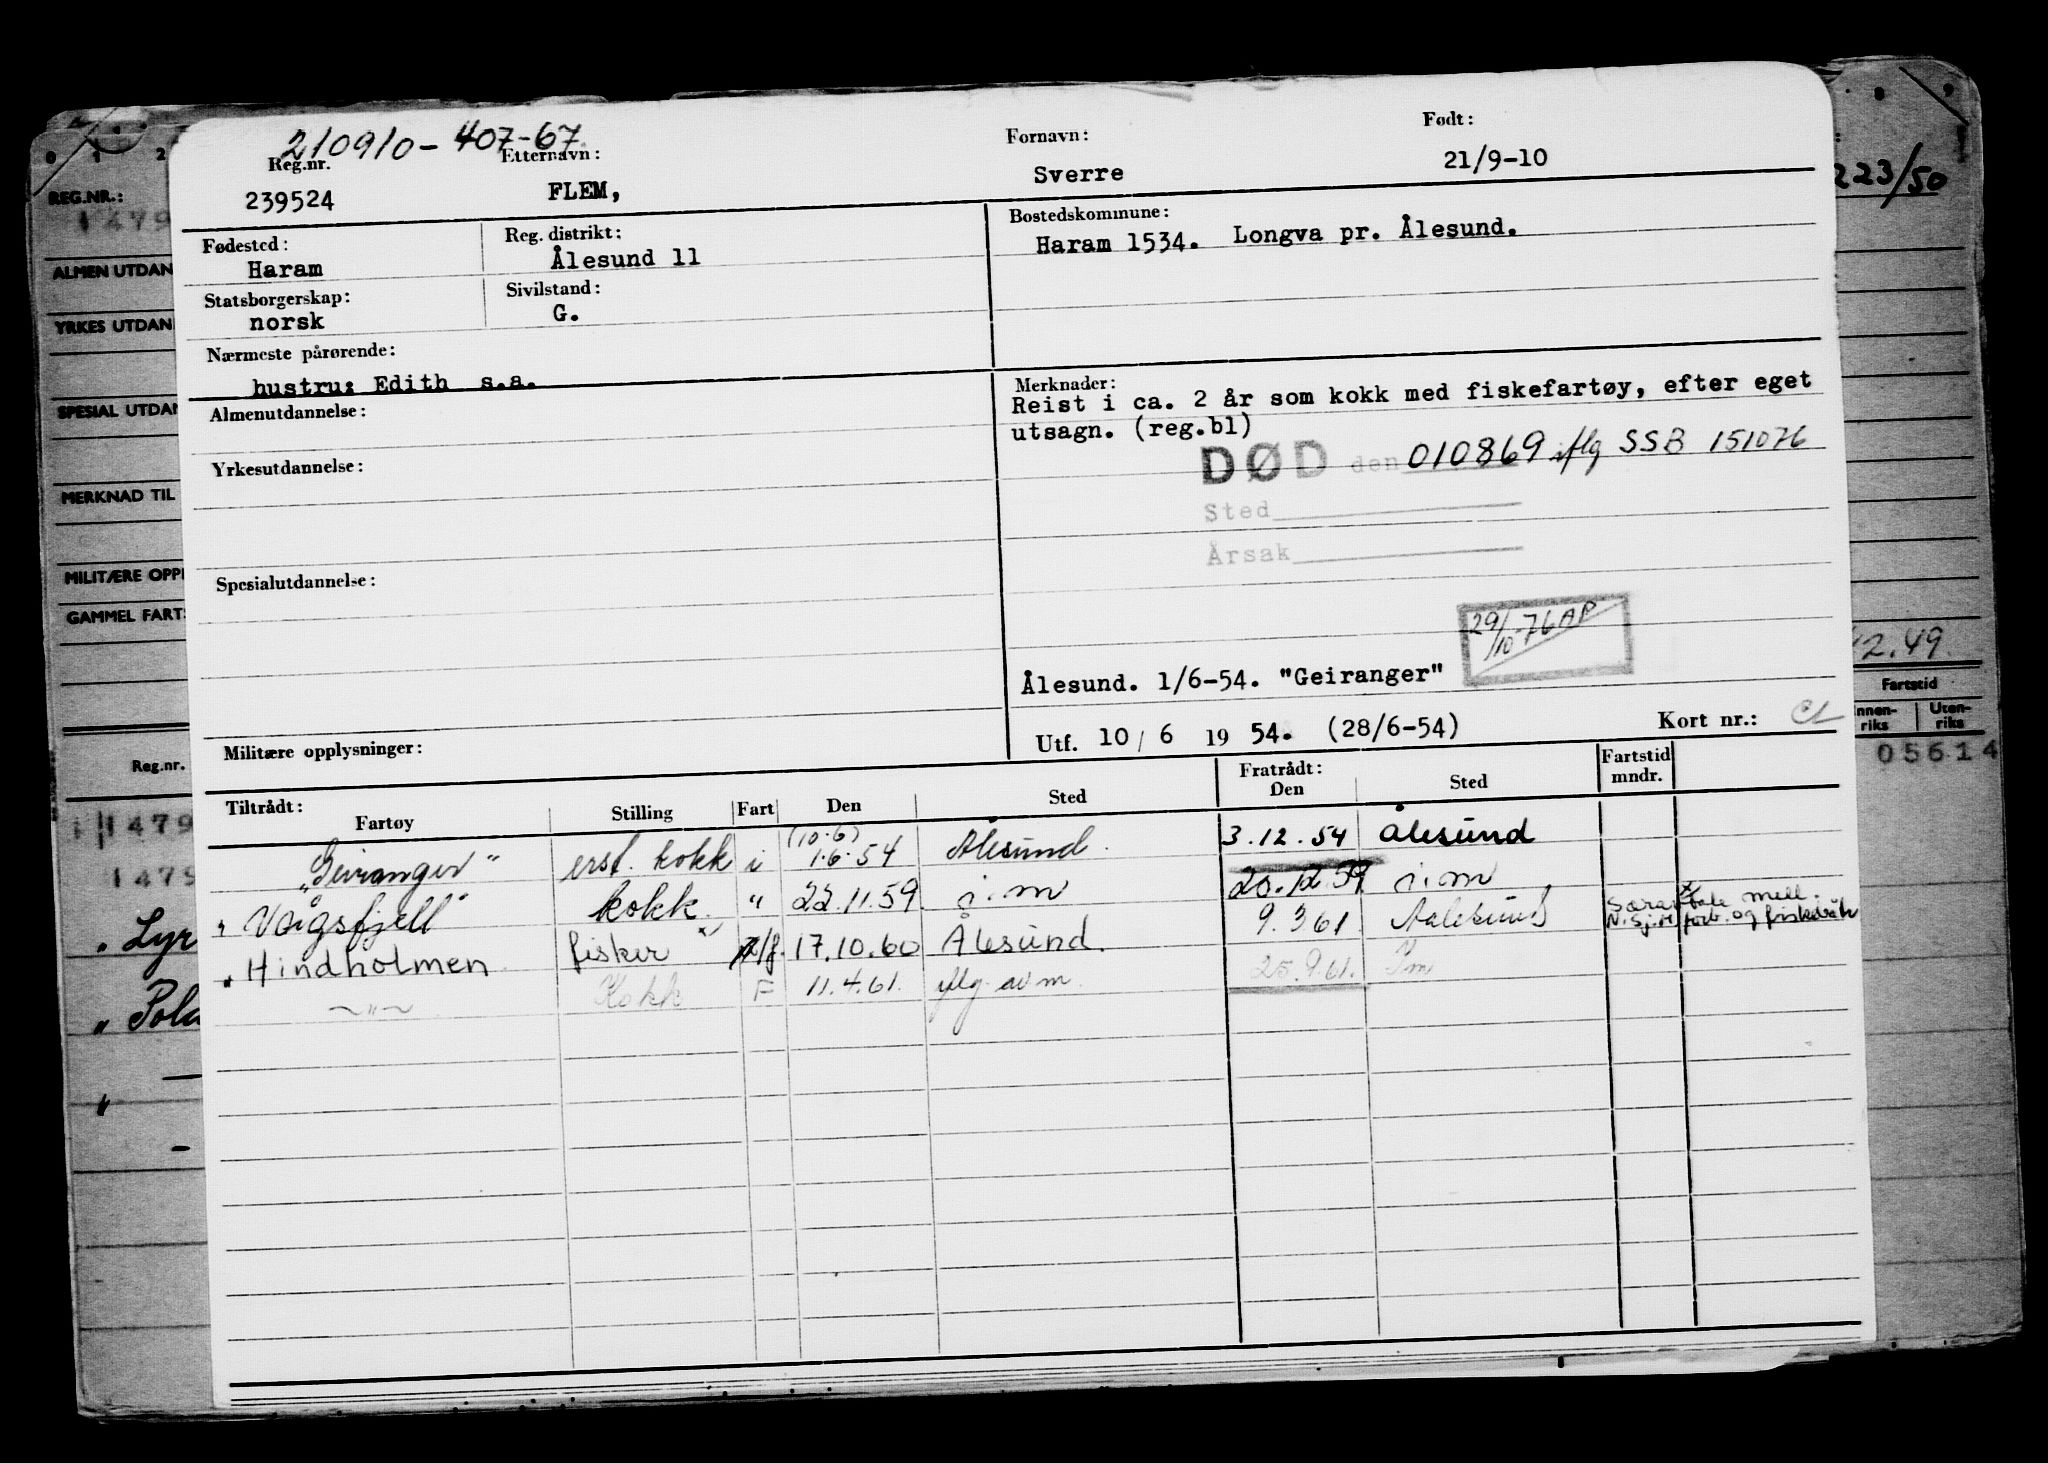 210910-407-67
Reg.nr. Etternavn: Fornavn: Født:
239524 FLEM, Sverre 21/9-10
Fødested: Reg. distrikt: Bostedskommune:
Haram Ålesund 11 Haram 1534. Longva pr. Ålesund.
Statsborgerskap: Sivilstand:
norsk G.
Nærmeste pårørende:
hustru: Edith s.a.
Almenutdannelse:
Yrkesutdannelse:
Spesialutdannelse:
Militære opplysninger:
Merknader:
Reist i ca. 2 år som kokk med fiskefartøy, efter eget
utsagn. (reg.bl)
DØD den 010869 iflg SSB 151076
Sted
Årsak
29/10-76 AP
Ålesund. 1/6-54. "Geiranger"
Utf. 10/6 1954. (28/6-54) Kort nr.:
Tiltrådt: Fratrådt: Fartstid
Fartøy Stilling Fart Den Sted Den Sted mndr.
(10.6)
"Geiranger" erst. kokk i 1.6.54 Ålesund. 3.12.54 Ålesund
" Vågsfjell" kokk. " 22.11.59. i.m 20.12.59 i.m
" Hindholmen fisker n/f. 17.10.60 Ålesund. 9.3.61 Aalesund
—"— Kokk F 11.4.61. iflg. av m. 25.9.61. Im
REG.NR.:
1479
ALMEN UTDAN
YRKES UTDAN
SPESIAL UTDAN
MERKNAD TIL
MILITÆRE OPPL
GAMMEL FARTS
Reg.nr.
1479
1479
" Lyr
" Pola
"
0 1 2
8 9
223/50
2.49.
Fartstid
Innen-riks Uten-riks
05614